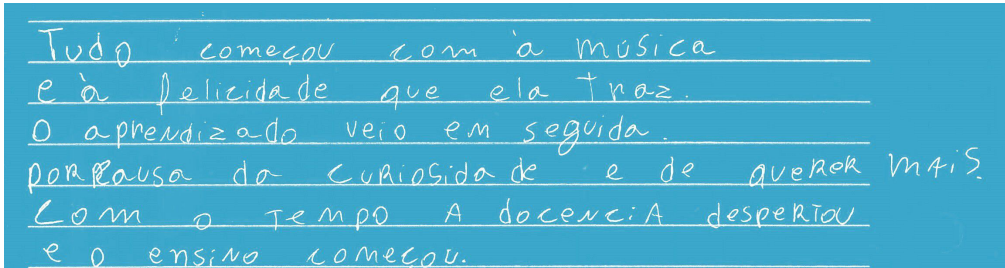 Tudo começou com à música
e à felicidade que ela traz.
O aprendizado veio em seguida.
por causa da curiosidade e de querer mais.
Com o tempo a docencia despertou
e o ensino começou.